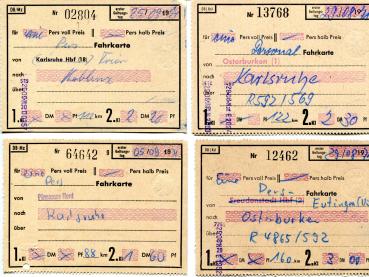 DB/Mz Nr 02804 erster Geltungstag
für eine Pers voll Preis Pers halb Preis
Pers
Fahrkarte
von Karlsruhe Hbf (18) Trier
nach Koblenz
über
1.Kl DM Pf km 2.Kl 2 DM Pf
DB/Mz Nr 13768 erster Geltungstag
für eine Pers voll Preis Pers halb Preis
Personal
Fahrkarte
von Osterburken (1)
nach Karlsruhe
über R 592/569
1.Kl DM Pf 122 km 2.Kl 2 DM 50 Pf
DB-Mz Nr 64642 g erster Geltungstag 05/09
für eine Pers voll Preis Pers halb Preis
Pers
Fahrkarte
von Pirmasens Nord
nach Karlsruhe
über
1.Kl DM Pf 88 km 2.Kl 1 DM 60 Pf
DB-Mz Nr 12462 erster Geltungstag
für eine Pers voll Preis Pers halb Preis
Pers-
Fahrkarte
von Freudenstadt Hbf Eutingen
nach Osterburken
über R 4865/592
1.Kl DM Pf 160 km 2.Kl 3 DM 00 Pf